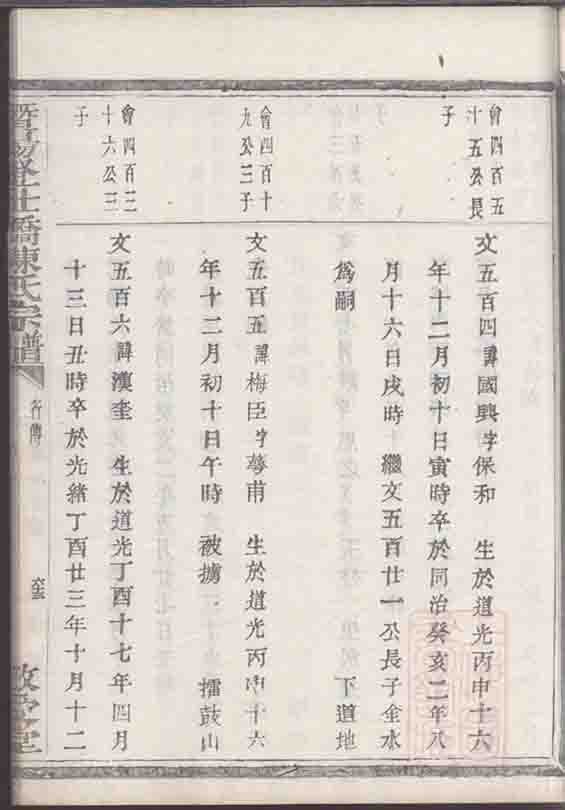 會四百五
十五公長
子
文五百四諱國興字保和 生於道光丙申十六
年十二月初十日寅時卒於同治癸亥二年八
月十六日戌時 繼文五百廿一公長子金水
爲嗣 下道地
會四百十
九公三子
文五百五諱梅臣字蕚甫 生於道光丙申十六
年十二月初十日午時 被擄 擂鼓山
會四百三
十六公三
子
文五百六諱漢奎 生於道光丁酉十七年四月
十三日丑時卒於光緒丁酉廿三年十月十二
橋陳氏宗譜
行傳
堂